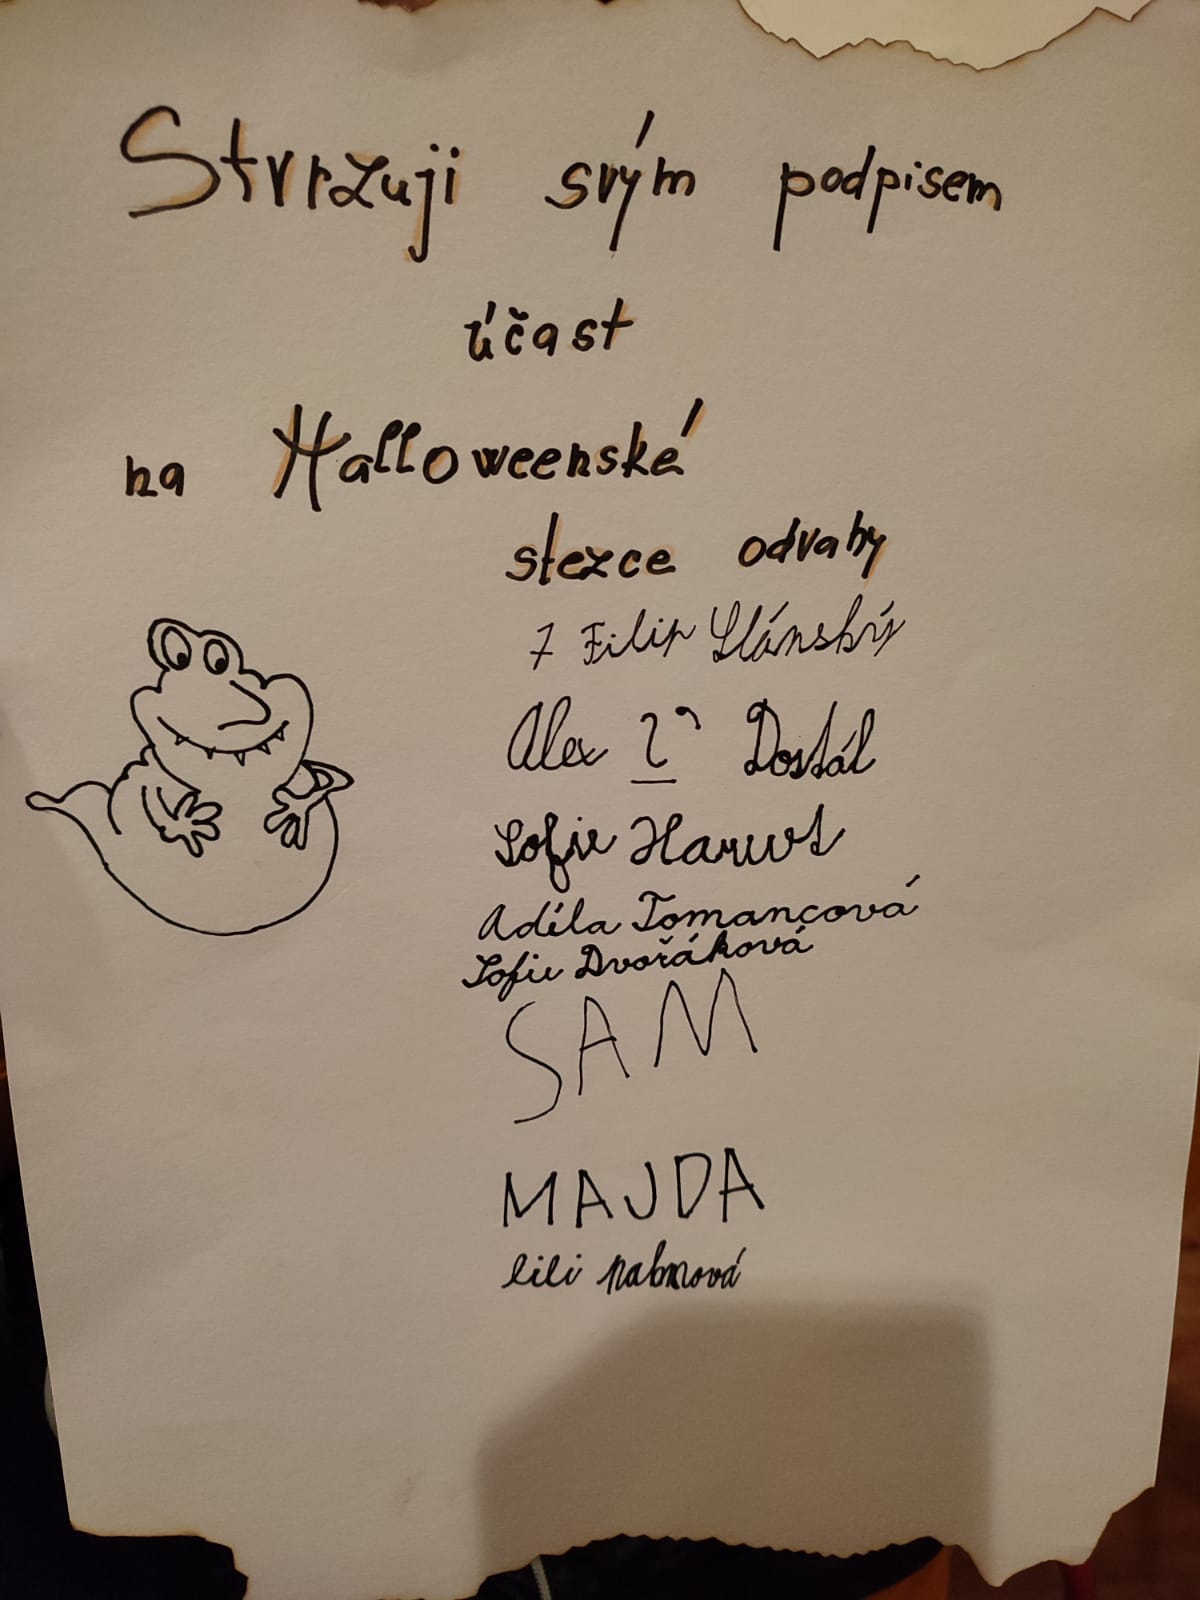 Stvrzuji svým podpisem
účast
na Halloweenské
stezce odvahy
7 Filip Slánský
Alex Dostál
Sofie
Adéla Tomancová
Sofie Dvořáková
SAM
MAJDA
lili